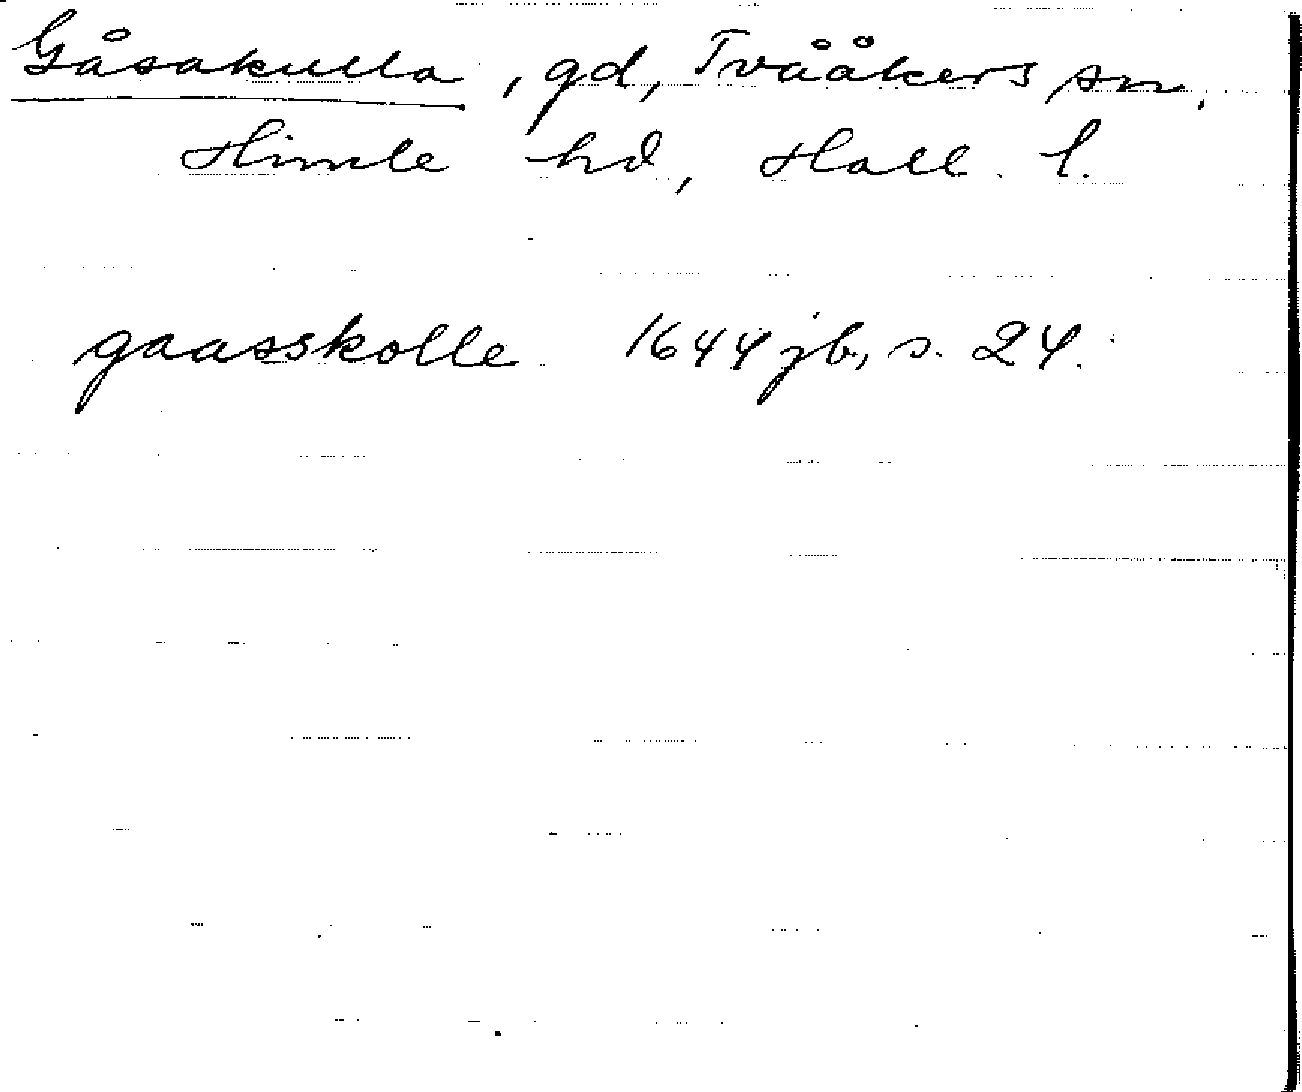 Gåsakulla, gd, Tvååkers sn,
Himle hd, Hall. l.
gaasskolle 1644 jb, s. 24.